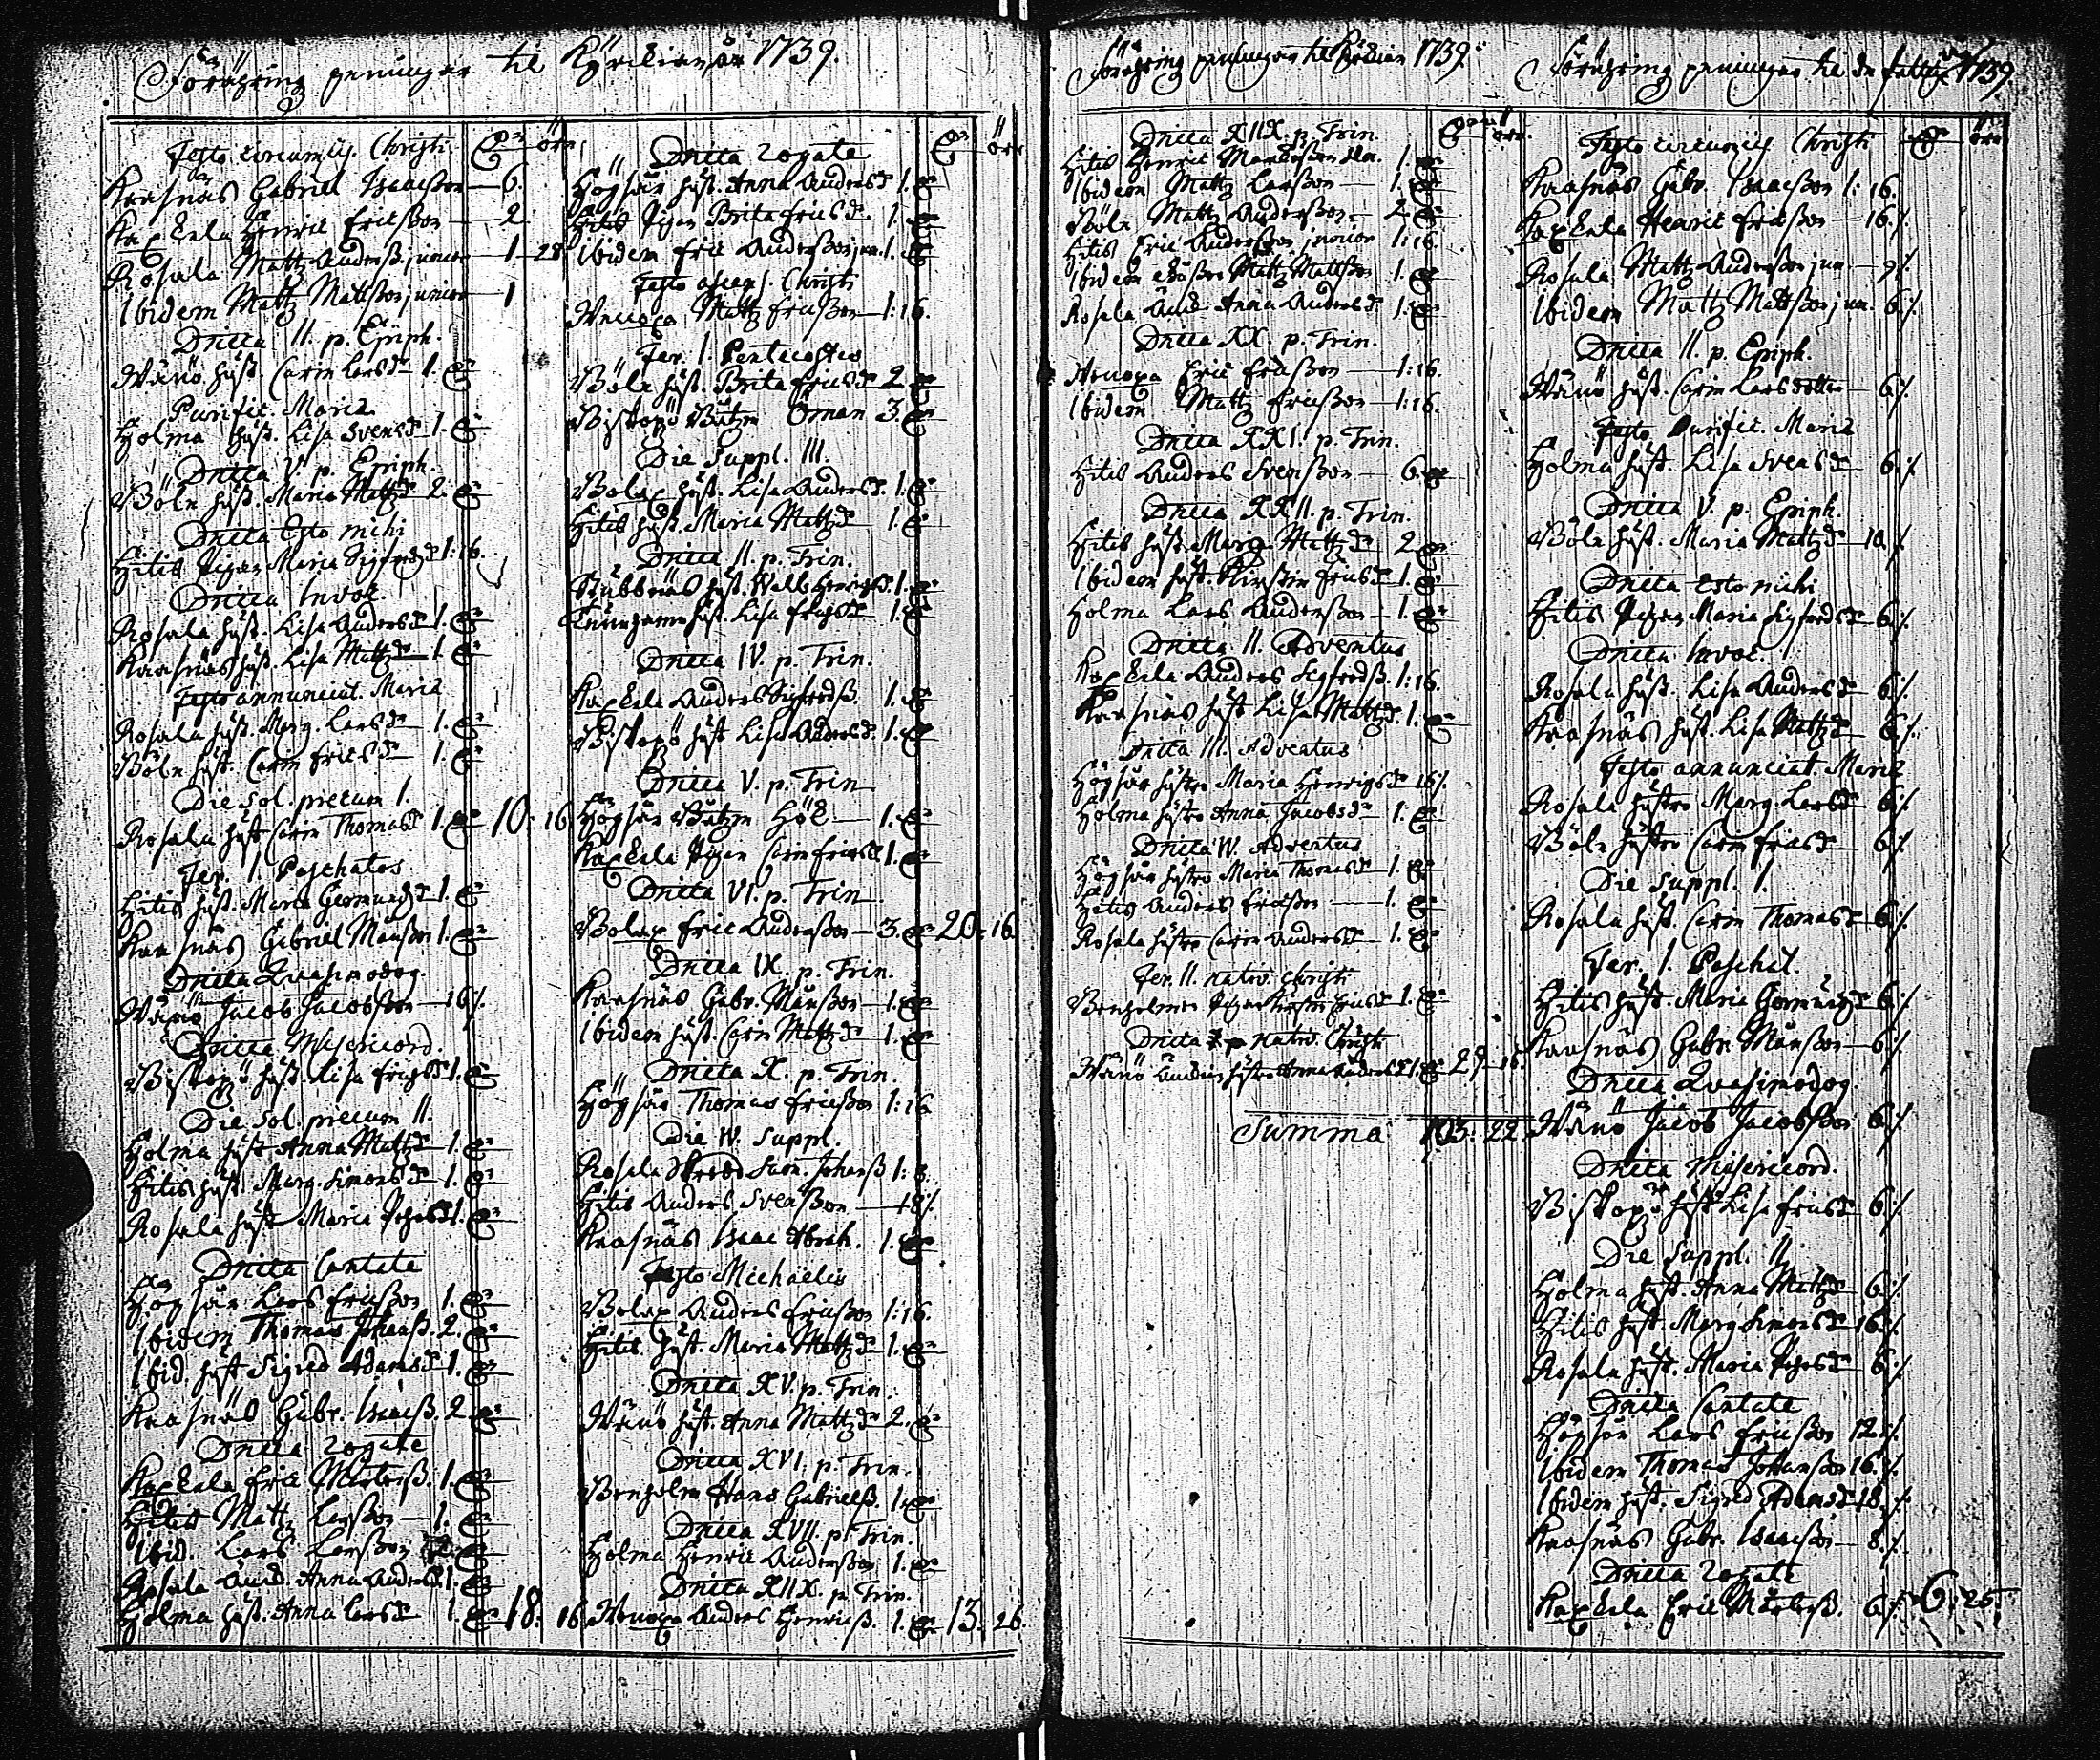 Föräring peningar til Kyrkian år 1739.
Festo circumcis. Christi.
Kaasnäs Gabriel Isaacsson — 6.
Kaxkela Henric Ericsson — 2
Rosala Matz Anderss. junior — 1 — 28
Ibidem Matz Matsson junior — 1
Dnica II. p. Epiph.
Wänö hust. Carin Larsdr 1.
Purific. Mariæ
Holma hust. Lisa Svensdr 1.
Dnica V. p. Epiph.
Böle hust. Maria Matzdr 2.
Dnica Esto mihi
Hitis Pigan Maria Sigfredzdr 1:16.
Dnica Invoc.
Rosala hust. Lisa Andersdr 1.
Kaasnäs hust. Lisa Matzdr 1.
Festo annunciat. Mariæ
Rosala hust. Marg. Larsdr 1.
Böle hust. Carin Ericsdr 1.
Die sol. precum I.
Rosala hust Carin Thomasdr 1. 10: 16
Fer. I. Paschatos
Hitis hust. Maria Germundzdr 1.
Kaasnäs Gabriel Månsson 1.
Dnica Quasimodog.
Wänö Jacob Jacobsson — 16/.
Dnica Misericord.
Biskopö hust. Lisa Ericsdr 1.
Die sol. precum II.
Holma hust Anna Matzdr 1.
Hitis hust. Marg. Simonsdr 1.
Rosala hust Maria 1.
Dnica Cantate
Högsår Lars Ericsson 1.
Ibidem Thomas Johanss. 2.
Ibid. hust Sigred Adamsdr 1.
Kaasnäs Gabr. Isaacss. 2
Dnica Rogate
Kaxkela Eric Mårtenss. 1.
Hitis Matz Larsson — 1.
Ibid. Lars Larsson
Rosala Anna Andersdr 1.
Holma hust. Anna Larsdr 1. 18: 16
Dnica Rogate
Högsår hust. Anna Andersdr 1.
Hitis Pigan Brita Ericsdr. 1.
Ibidem Eric Andersson jun. 1.
Festo ascens. Christi
Wenoxa Matz Ericsson — 1:16.
Fer. I. Pentecostes
Böle hust. Brita Ericsdr 2
Biskopö Båtzm Öman 3
Die Suppl. III.
Bolax hust. Lisa Andersdr. 1.
Hitis hust. Maria Matzdr 1.
Dnica II. p. Trin.
Stubbnäs hust. Walb. 1.
hust. Lisa 1.
Dnica IV. p. Trin.
Kaxkela Anders Sigfredss. 1.
Biskopö hust Lisa Andersdr. 1.
Dnica V. p. Trin
Högsår Båtzm Hök — 1.
Kaxkela Pigan Carin Ericsdr 1.
Dnica VI. p. Trin.
Bolax Eric Andersson — 3. 20: 16
Dnica IX. p. Trin.
Kaasnäs Gabr. Månsson — 1.
Ibidem hust. Carin Matzdr 1.
Dnica X. p. Trin.
Högsår Thomas Ericsson 1:16
Die IV. Suppl.
Rosala Johanss 1: 8.
Hitis Anders Svensson — 18/.
Kaasnäs Isaac Abrah. 1.
Festo Michaelis
Bolax Anders Ericsson 1:16.
Hitis hust. Maria Matzdr 1.
Dnica XV. p. Trin.
Wänö hust. Anna Matzdr 2.
Dnica XVI. p. Trin.
Benholm Hans Gabrielss. 1.
Dnica XVII. p. Trin.
Holma Henric Andersson 1.
Dnica XIIX. p. Trin.
Wenoxa Anders Henricss. 1. 13. 26.
Föräring peningar til Kyrkian 1739.
Dnica XIIX. p. Trin.
Hitis Henric 1.
Ibidem Matz Larsson — 1.
Böle Matz Andersson — 2.
Hitis Eric Andersson junior 1:16.
Ibidem Matz Mattsson 1.
Rosala Anna Andersdr. 1.
Dnica XX. p. Trin.
Wenoxa Eric Ericsson — 1:16.
Ibidem Matz Ericsson — 1:16.
Dnica XXI. p. Trin.
Hitis Anders Svensson — 6.
Dnica XXII. p. Trin.
Hitis hust. Marg. Matzdr 2
Ibidem hust. Kirstin Ericsdr 1.
Holma Lars Andersson 1.
Dnica II. Adventus
Kaxkela Anders Sigfredss. 1:16.
Kaasnäs hust Lisa Matzdr. 1.
Dnica III. Adventus
Högsår hustro Maria Henricsdr 16/.
Holma hustro Anna Jacobsdr 1.
Dnica IV. Adventus
Högsår hustro Maria Thomasdr 1.
Hitis Anders Ericsson — 1.
Rosala hustro Carin Andersdr 1.
Fer. II. nativ. Christi
Benholmen Pigan Kirstin Ericsdr 1.
Dnica p. nativ. Christi
Wänö hustro Anna Andersdr 1. 29 16.
Summa 105. 22.
Föräring peningar til de fattige 1739
Festo circumcis. Christi
Kaasnäs Gabr. Isaacsson 1: 16.
Kaxkela Henric Ericsson — 16/.
Rosala Matz Andersson jun. — 9/.
Ibidem Matz Matsson jun. 6/.
Dnica II. p. Epiph.
Wänö hust. Carin Larsdotter — 6/.
Festo Purific. Mariæ
Holma hust. Lisa Svensdr 6/.
Dnica V. p. Epiph.
Böle hust. Maria Matzdr — 10/.
Dnica Esto mihi
Hitis Pigan Maria Sigfredsdr 6/.
Dnica Invoc.
Rosala hust. Lisa Andersdr 6/.
Kaasnäs hust. Lisa Matzdr 6/.
Festo annunciat. Mariæ
Rosala hustro Marg. Larsdr 6/.
Böle hustro Carin Ericsdr 6/.
Die Suppl. I.
Rosala hust. Carin Thomasdr 6/.
Fer. I. Paschat.
Hitis hust. Maria Germundzdr 6/.
Kaasnäs Gabr. Månsson — 6/.
Dnica Quasimodog.
Wänö Jacob Jacobsson 6/.
Dnica Misericord.
Biskopö hust Lisa Ericsdr 6/.
Die Suppl. II.
Holma hust. Anna Matzdr 6/.
Hitis hust. Marg Simonsdr 16/.
Rosala hust. Maria 6/.
Dnica Cantate
Högsår Lars Ericsson 12/.
Ibidem Thomas Johansson 16/.
Ibidem hust. Sigred Adamsdr 18/.
Kaasnäs Gabr. Isaacsson — 8/.
Dnica Rogate
Kaxkela Eric Mårtenss. 6/. 6:25.